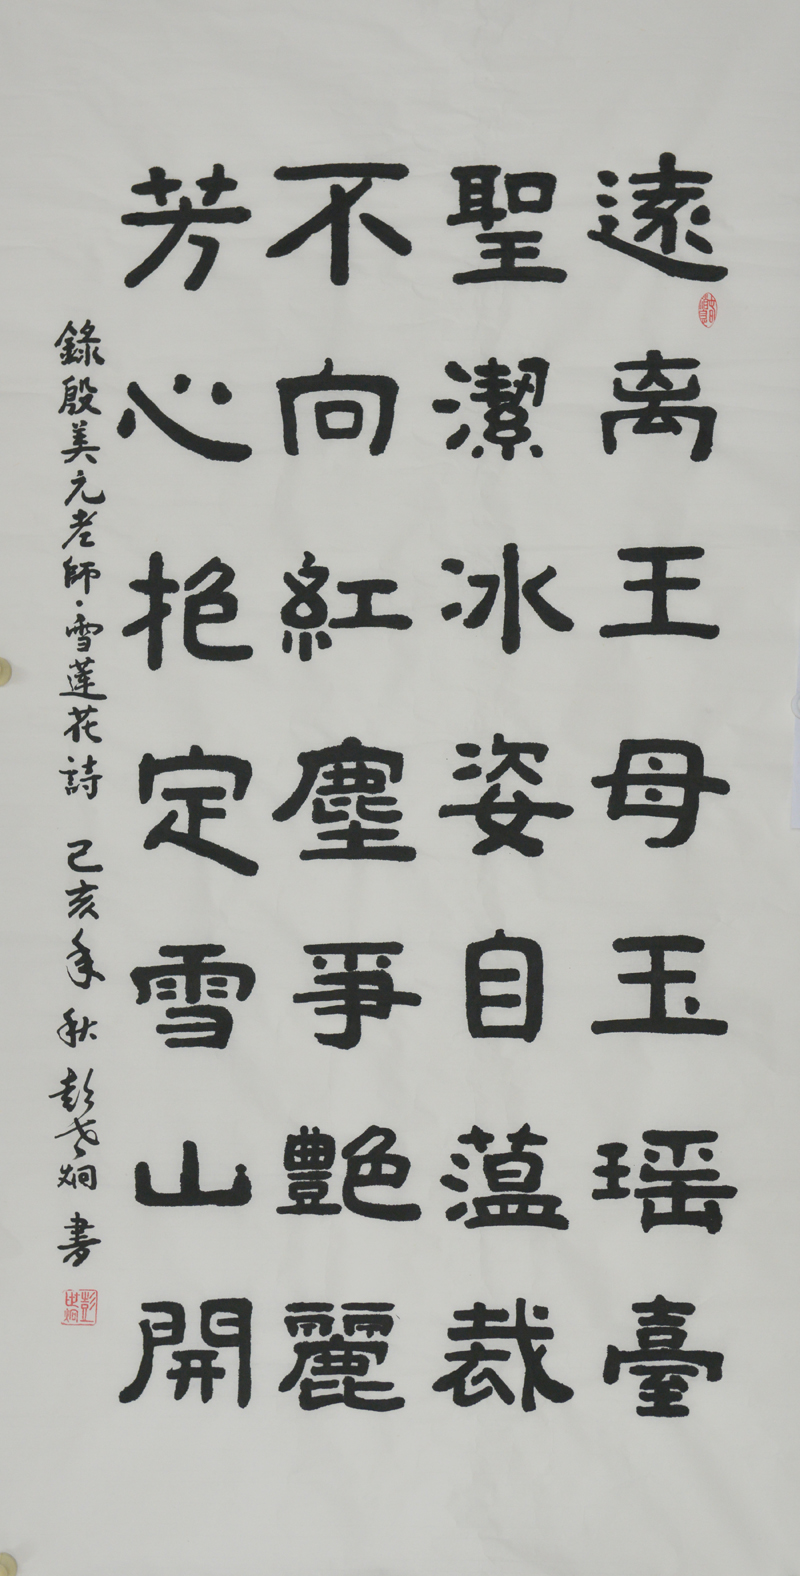 遠离王母玉瑶臺
聖潔冰姿自蕰裁
不向紅塵爭艷麗
芳心抱定雪山開
錄殷美元老師·雪蓮花詩 己亥年秋 彭世炯書